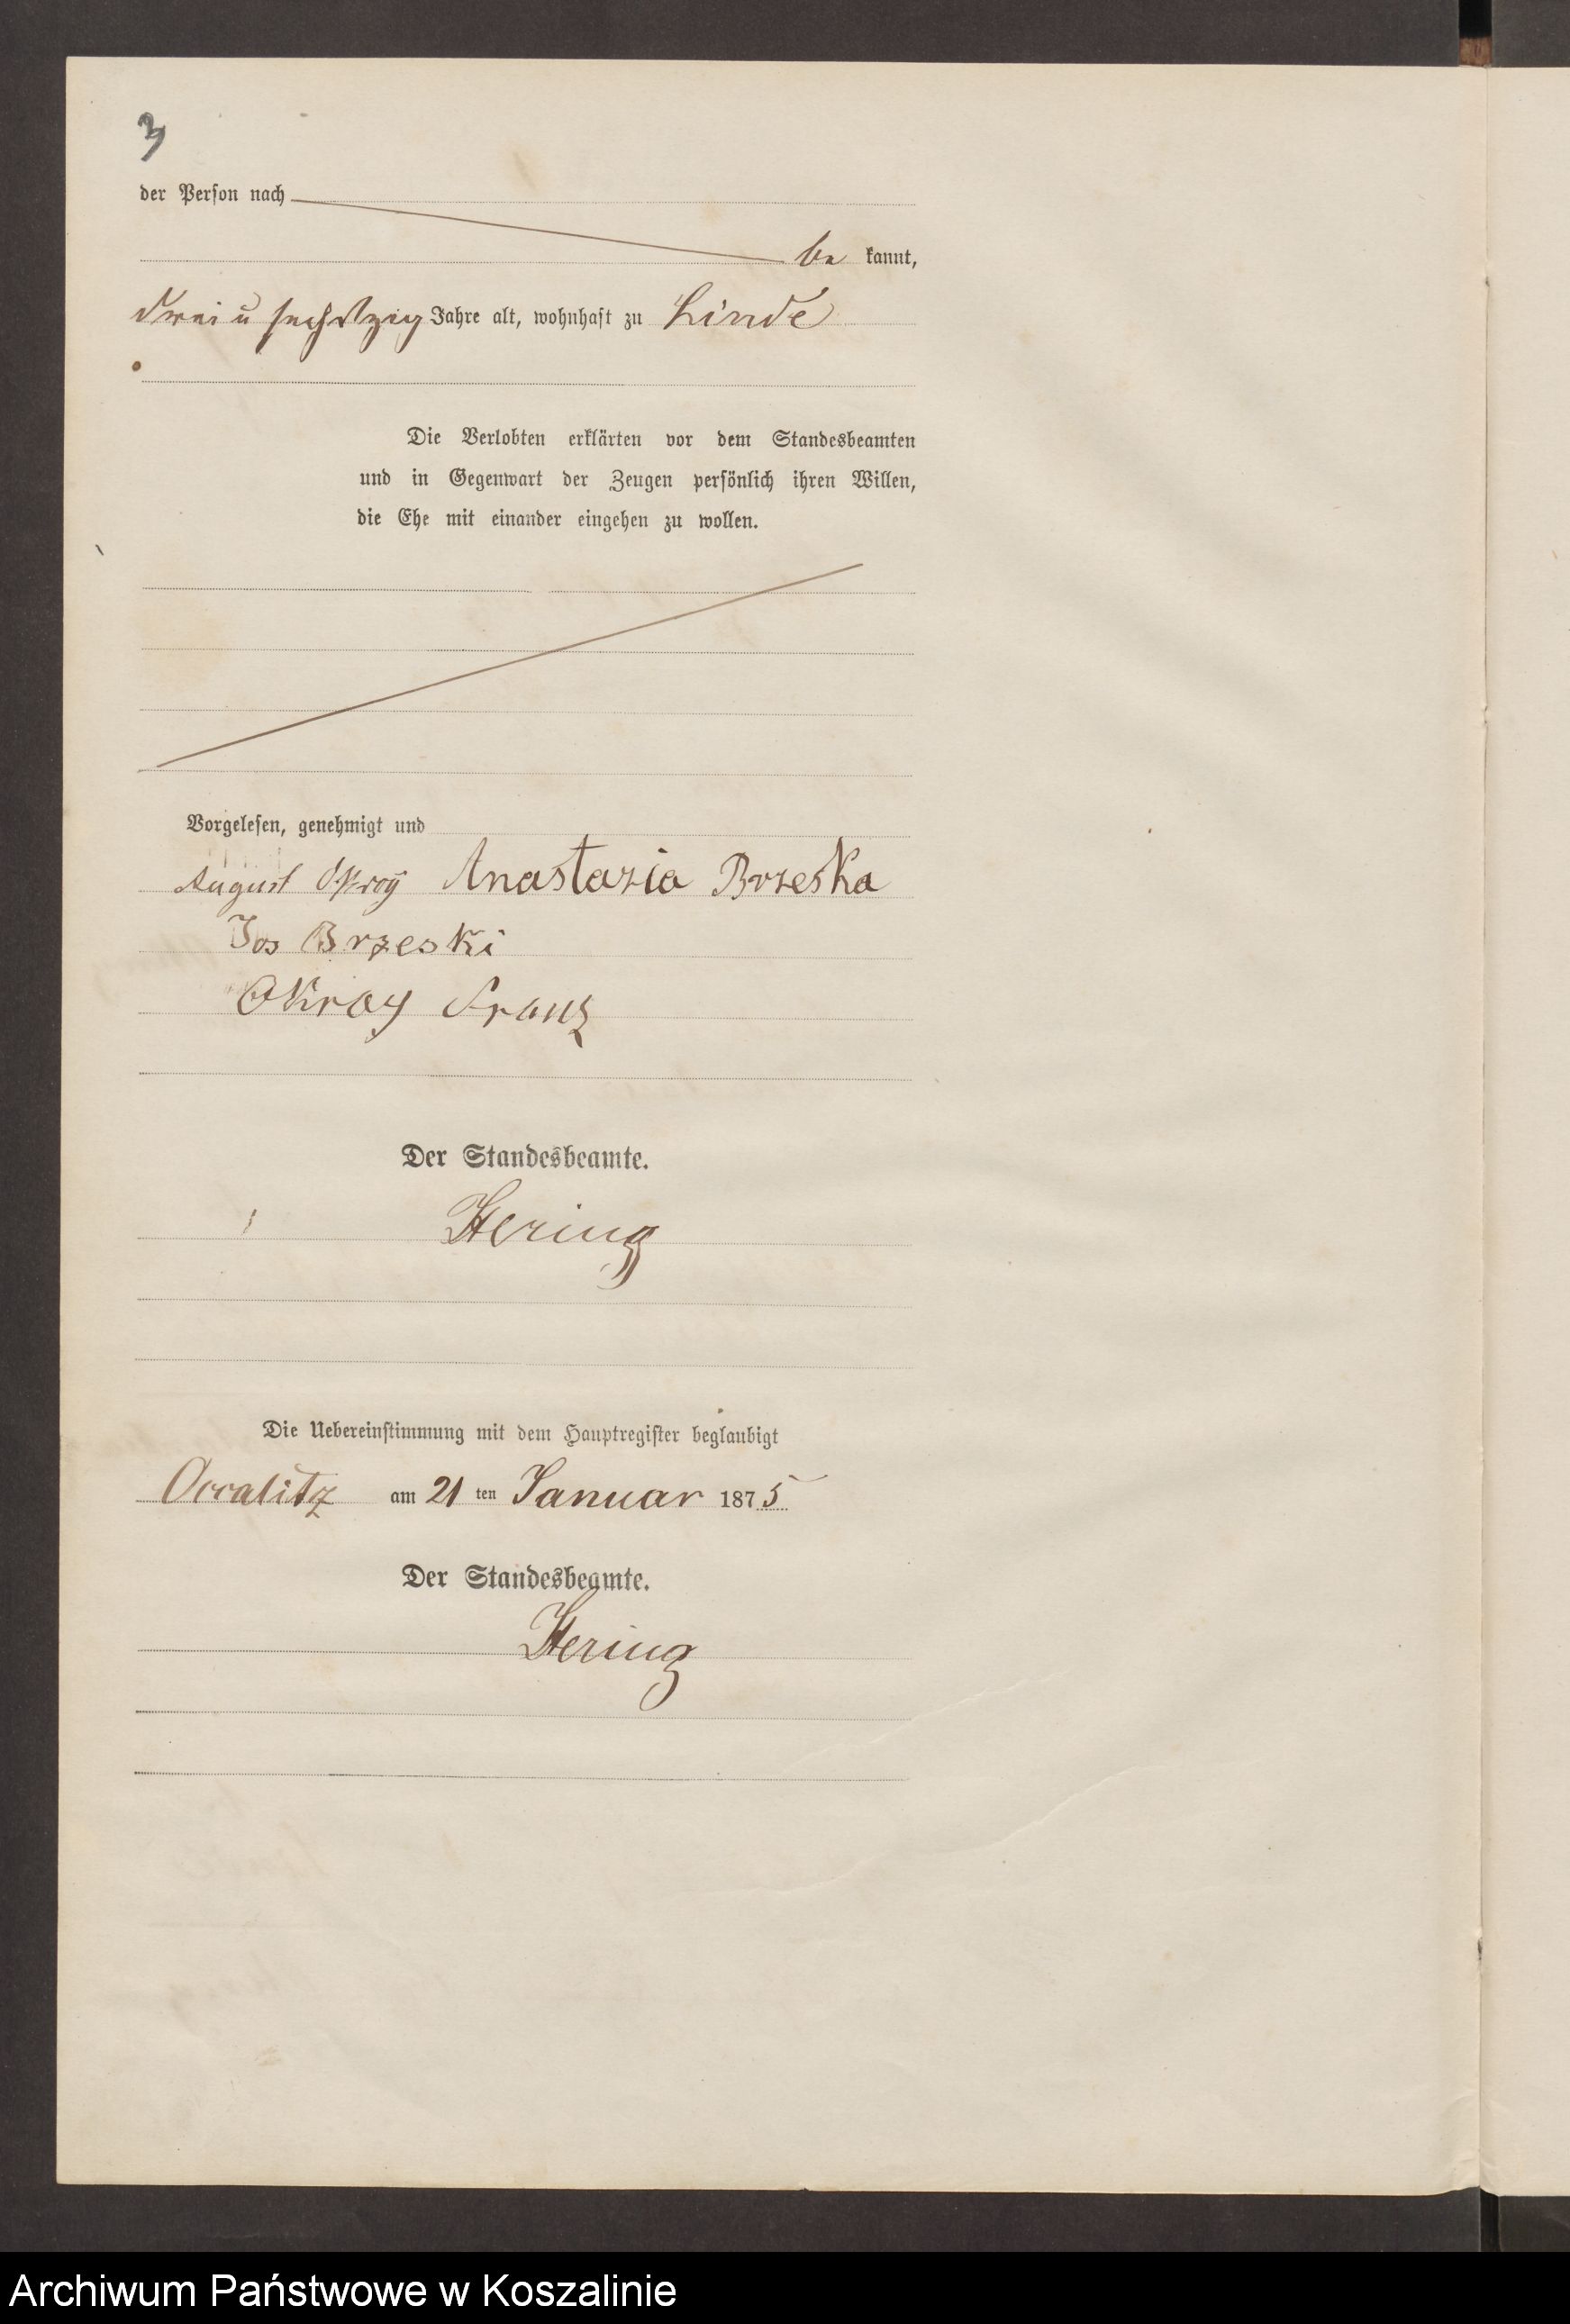 3
der Person nach
be kannt,
drei u sechszig Jahre alt, wohnhaft zu Linde
Die Verlobten erklärten vor dem Standesbeamten
und in Gegenwart der Zeugen persönlich ihren Willen,
die Ehe mit einander eingehen zu wollen.
Vorgelesen, genehmigt und
August Okroÿ Anastazia Brzeska
Jos Brzeski
Okroy Franz
Der Standesbeamte.
Hering
Die Uebereinstimmung mit dem Hauptregister beglaubigt
Occalitz am 21 ten Januar 1875
Der Standesbeamte.
Hering
Archiwum Państwowe w Koszalinie